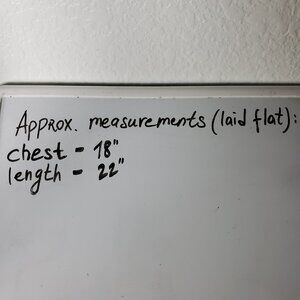 Approx. measurements (laid flat):
chest - 18"
length - 22"